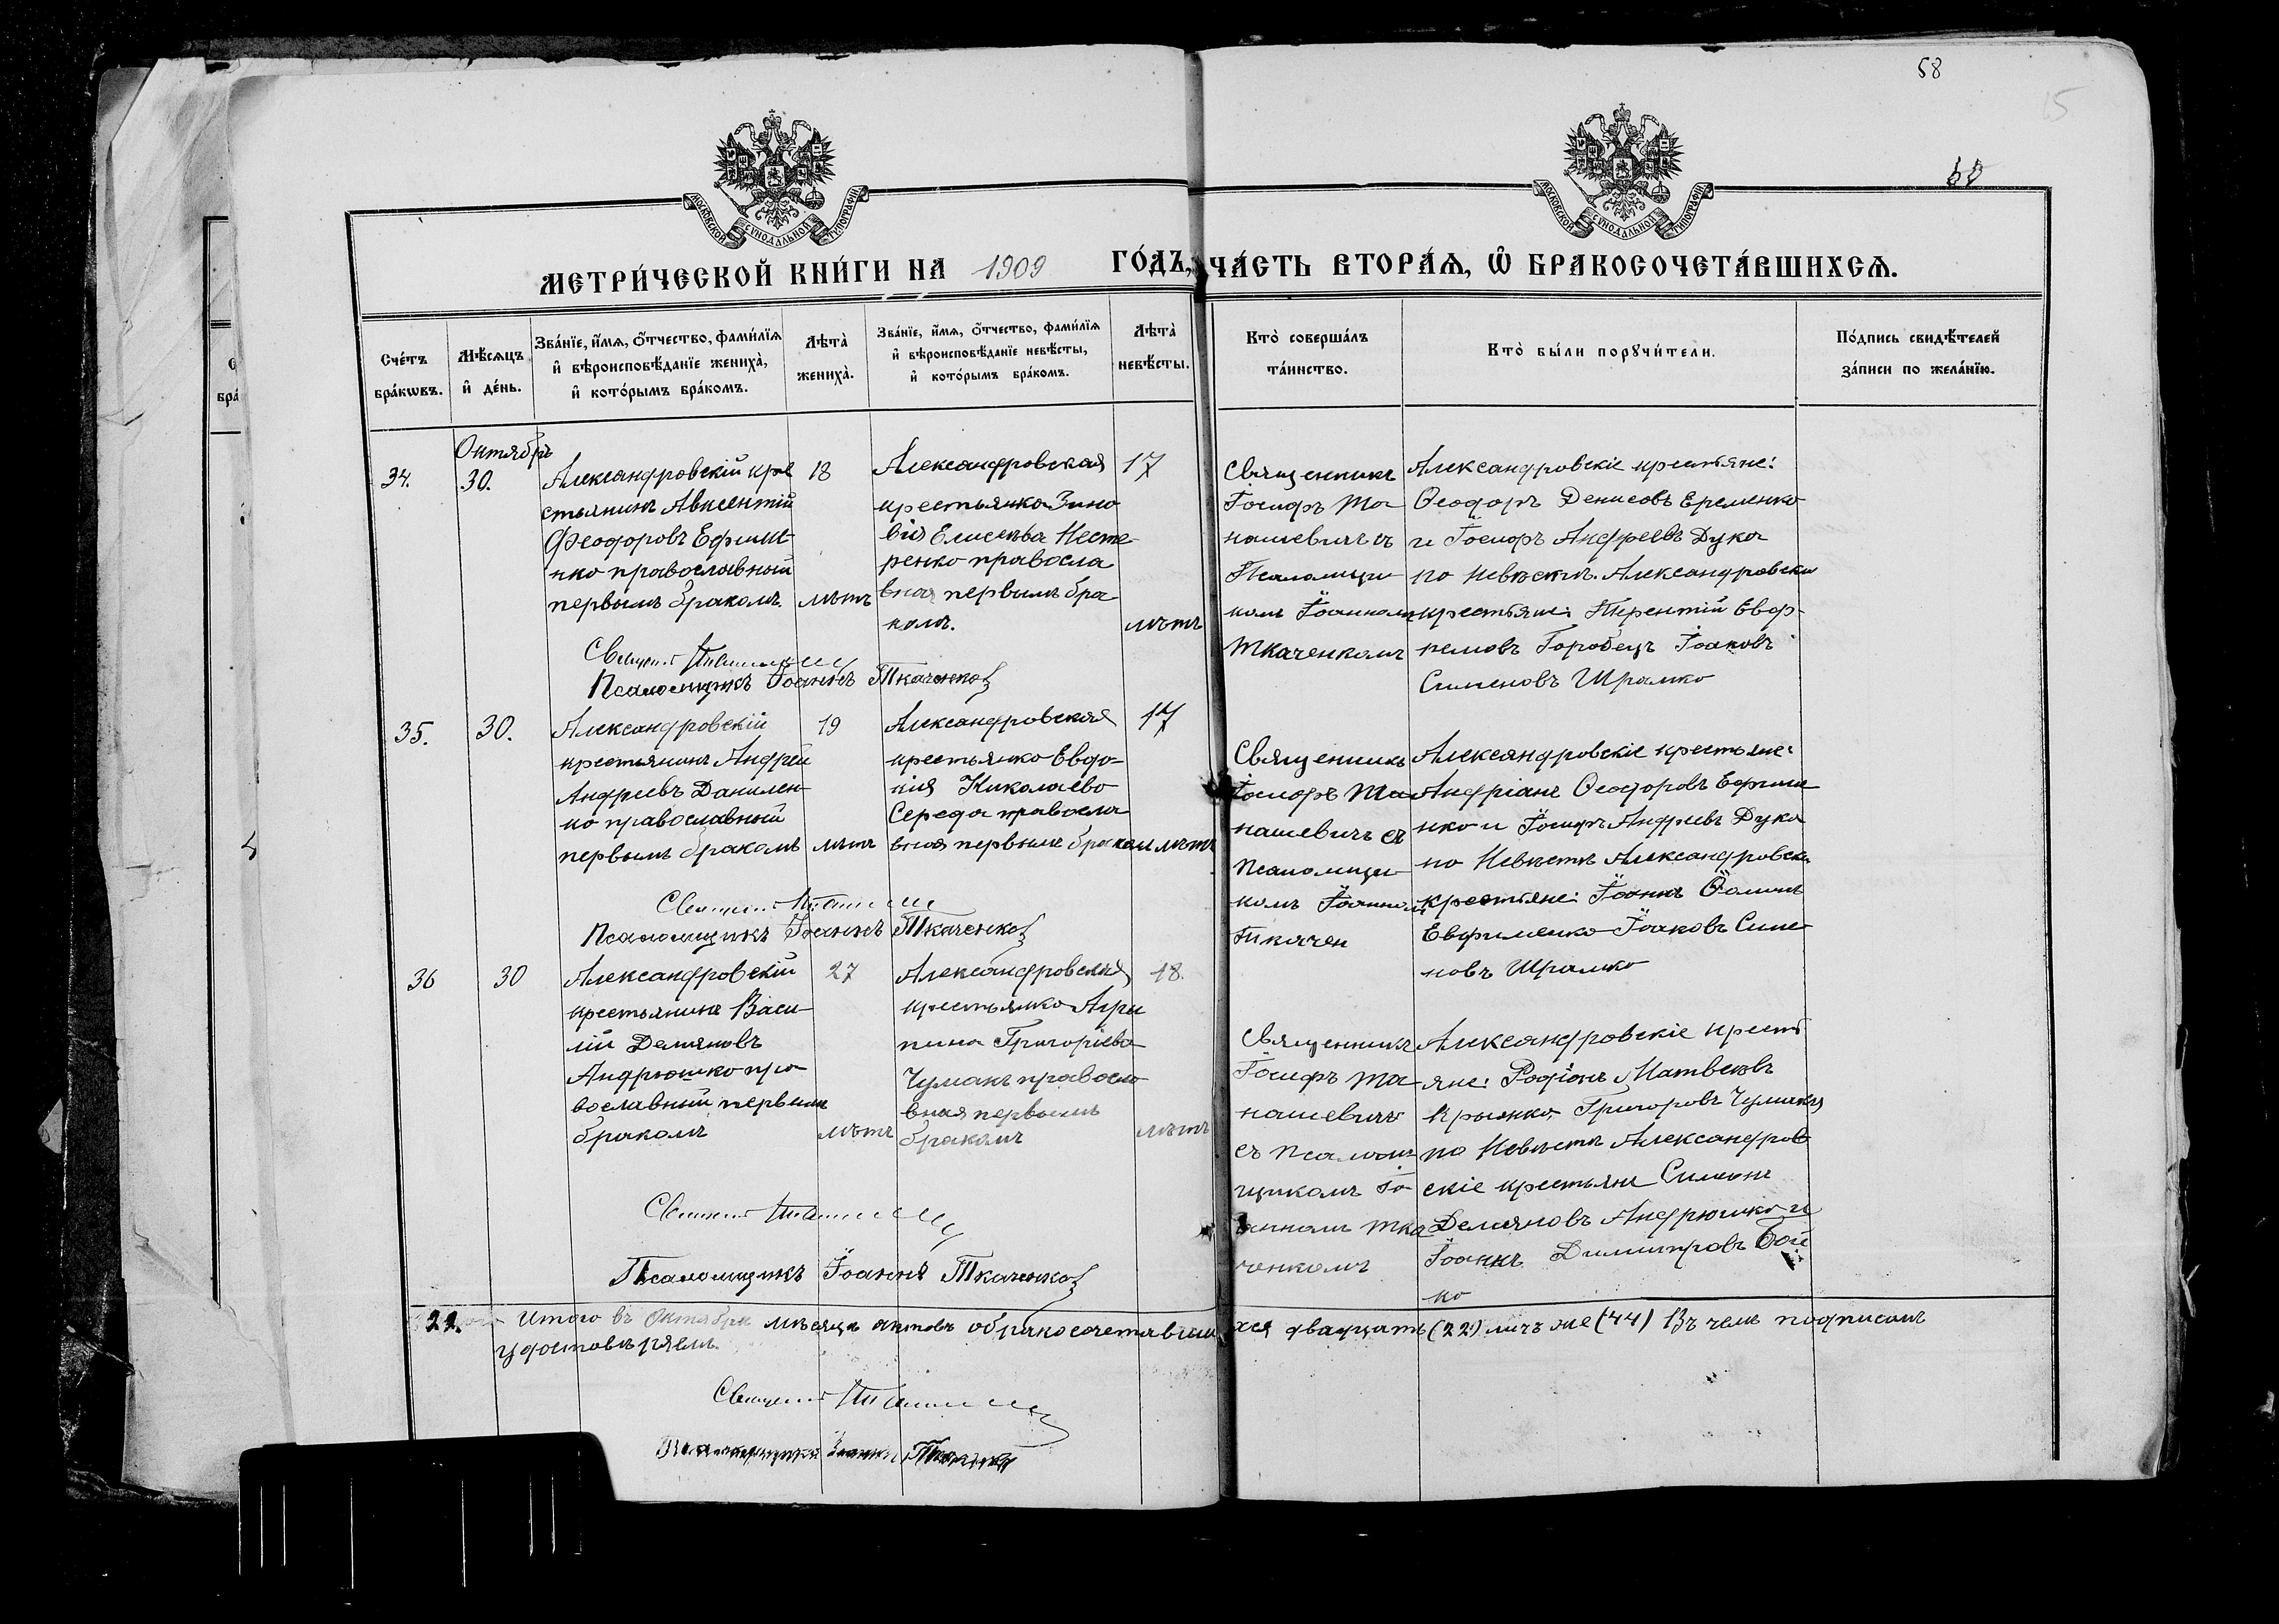 58
15
МОСКОВСКОЙ СѴНОДАЛЬНОЙ ТИПОГРАФІИ
МОСКОВСКОЙ СѴНОДАЛЬНОЙ ТИПОГРАФІИ
МЕТРИ́ЧЕСКОЙ КНИ́ГИ НА 1909 ГО́ДЪ, ЧА́СТЬ ВТОРА́Ѧ, Ѽ БРАКОСОЧЕТА́ВШИХСѦ.
Сче́тъ бра́кѡвъ.
Мѣ́сѧцъ и҆ де́нь.
Зва́нїе, и҆́мѧ, ѻ҆́тчество, фами́лїѧ
и҆ вѣроисповѣ́данїе жениха̀,
и҆ кото́рымъ бра́комъ.
Лѣта̀ жениха̀.
Зва́нїе, и҆́мѧ, ѻ҆́тчество, фами́лїѧ
и҆ вѣроисповѣ́данїе невѣ́сты,
и҆ кото́рымъ бра́комъ.
Лѣта̀ невѣ́сты.
Кто̀ соверша́лъ
та́инство.
Кто̀ бы́ли порꙋчи́тели.
По́дпись свидѣ́телей
за́писи по жела́нїю.
Октябрь
34.
30.
Александровскій кре
стьянинъ Авксентій
Феодоровъ Ефиме
нко православный
первымъ бракомъ.
18
лѣтъ
Александровская
крестьянка Зино
вія Елисеева Несте
ренко правосла
вная первымъ бра
комъ.
17
лѣтъ
Священникъ
Іосифъ Та
нашевичъ съ
Псаломщи
комъ Іоанномъ
Ткаченкомъ
Александровскіе крестьяне:
Ѳеодоръ Денисовъ Еременко
и Іосифъ Андреевъ Дука
по невѣстѣ. Александровскіе
крестьяне: Терентій Евф-
немовъ Горобецъ Іаковъ
Сименовъ Шрамко
Псаломщикъ Іоаннъ Ткаченко
35.
30.
Александровскій
крестьянинъ Андрей
Андреевъ Данилен
ко православный
первымъ бракомъ
19
лѣтъ
Александровская
крестьянка Евдо-
кія Николаева
Середа правосла
вная первымъ бракомъ
17
лѣтъ
Священникъ
Іосифъ Та
нашевичъ съ
Псаломщи
комъ Іоанномъ
Ткачен
Александровскіе крестьяне:
Андріанъ Ѳеодоровъ Ефиме
нко и Іосифъ Андреевъ Дука
по Невѣстѣ Александровскіе
крестьяне: Іоаннъ Ѳоминъ
Евфименко Іаковъ Симе
новъ Шрамко
Псаломщикъ Іоаннъ Ткаченко
36
30
Александровскій
крестьянинъ Васи
лій Демяновъ
Андрюшко пра
вославный первымъ
бракомъ
27
лѣтъ
Александровская
крестьянка Агри
пина Григоріева
Чумакъ правосла
вная первымъ
бракомъ
18.
лѣтъ
Священникъ
Іосифъ Та
нашевичъ
съ Псалом
щикомъ Іо
анномъ Тка
ченкомъ
Александровскіе крестъ
яне: Родіонъ Матвеевъ
Григоровъ Чумакъ
по Невѣстѣ Александров
скіе крестьяне Симеонъ
Демяновъ Андрюшко и
Іоаннъ Димитровъ Бой
ко
Псаломщикъ Іоаннъ Ткаченко
22. Итого въ Октябрѣ мѣсяцѣ актовъ о бракосочетавшихся двадцать (22) лицъ же (44) Въ чемъ подписомъ
удостовѣряемъ.